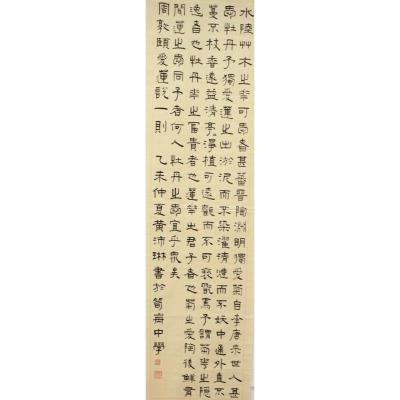 水陸艸木之華可愛者甚蕃晉陶淵明獨愛菊自李唐來世人甚
愛牡丹予獨愛蓮之出淤泥而不染濯清漣而不妖中通外直不
蔓不枝香遠益清亭〻淨植可遠觀而不可褻翫焉予謂菊華之隱
逸者也牡丹華之富貴者也蓮華之君子者也菊之愛陶後鮮有
聞蓮之愛同予者何人牡丹之愛宜乎眾矣
周敦頤愛蓮說一則 乙未仲夏黃沛琳書於筍崗中學